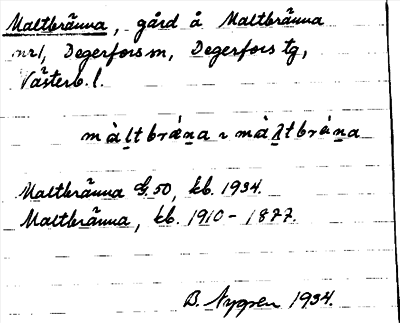 Maltbränna, gård å Maltbränna
nr 1, Degerfors sn, Degerfors tg,
Västerb. l.
Maltbränna G. 50, kb. 1934.
Maltbränna, kb. 1910-1877.
B. Nygren 1934.